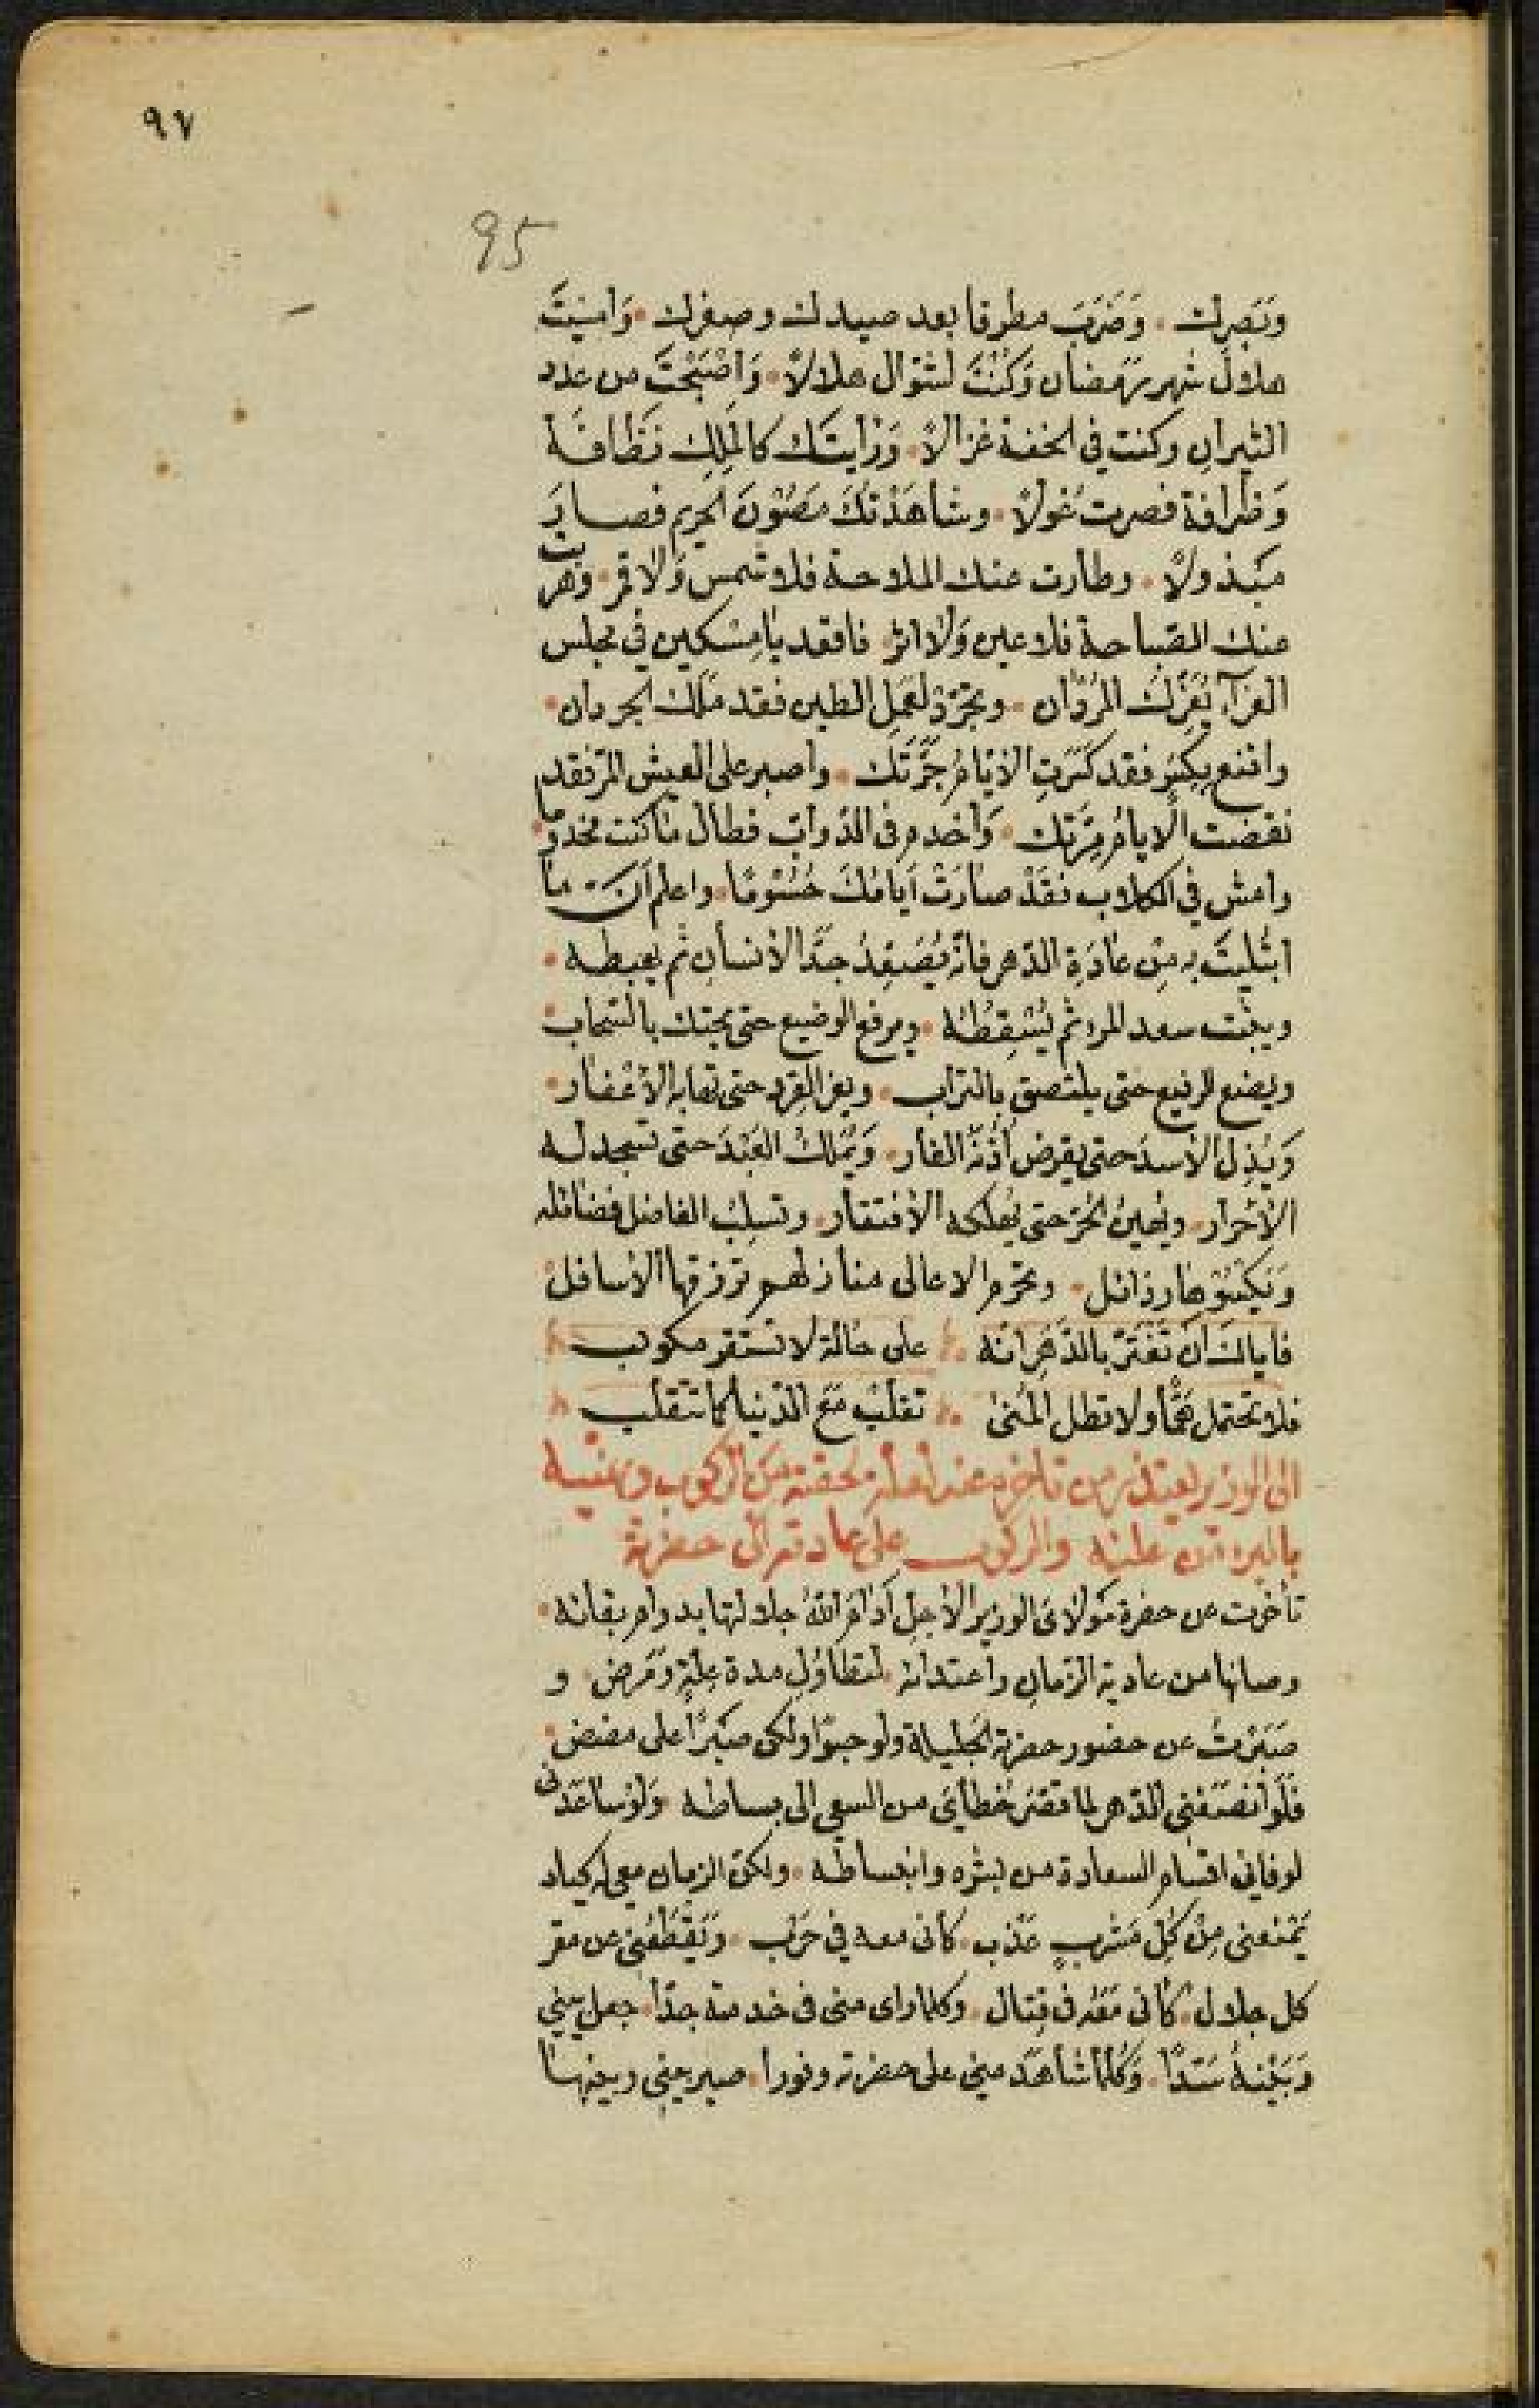 ٩٧
95
وبصرك وَضَرَبَ مطرقا بعد صيدك وصفرك وَامْسَيْتَ
هلالَ شهر رمضان وَكُنْتَ لشوّال هلالاً وَاَصْبَحْتَ من عدد
الثيران وكنت في الخفة غزالاً وَرَأيتك كالمَلِكِ نَظَافَةً
وَظرافة فصرت غولاً وشاهَدْتُكَ مَصُوْنَ الحريم فصارَ
مَبْذولاً وطارت عنك الملاحة فلا شمس وَلا قمر وهربت
عنك الصباحة فلا عين وَلا اثر فاقعد يا مِسْكين في مجلس
العزآء يُعَزِّكَ المُرْدَان وتجرّدْ لعَمَلِ الطين فقد مَلّك الجردان
واقنع بِكِسَرٍ فقد كَسَرَتِ الايّامُ جَرَّتك واصبر على العيش المرّ فقد
نقضت الايامُ مِرّتك وَاخدم في الدوابّ فطال ما كنت مخدوما
وامش في الكلاب فقَدْ صارَتْ اَيامُكَ حُسُوْمًا واعلم اَنّ ما
ابتُليتَ به مِنْ عادَةِ الدهر فانّه يُصَعِدُ جَدَّ الانسان ثم يهبطه
ويبعث سعد المرء ثم يُسْقِطُهُ ويرفع الوضيع حتى يحتك بالسّحاب
ويضع الرفيع حتى يلتصق بالتراب ويعز القرد حتى تهابه الاغفار
وَيُذِل الاسدَ حتى يقرض اُذُنَهُ الفار وَيُمَلّكُ العَبْدَ حتى تسجد له
الاحْرار ويُهينُ الحُرَّ حتى يُهلكه الافتقار وتسلِبُ الفاضل فضائله
وَيَكْسُوْها رذائل وتحرم الاعالى منازلهم ترزقها الاسافل
فاياكَ اَن تَغْتَرّ بالدَهْرِ انّه على حَالَة لا تستقر مكوكب
فلا تحتمل هَمًّا ولا تطل المُنى تقلبْ مَعَ الدنيا كما تتقلب
الى الوزير يعتذر من تاخره عنه لعلة لحقته من الركوب ويهنيه
بالبرء من علته والركوب على عادته الى حضرته
تأخرت عن حضرة مَوْلاىَ الوزير الاجل اَدامَ اللهُ جلالتها بدوام بقائه
وصانها من عادية الزمان واعتدائه لتطاوُلِ مدة عِلّةٍ وَمَرض و
صَبَرْتُ عن حضور حضرته الجليلة ولو حبوًا ولكن صَبْرًا على مضض
فَلَو انصَفَنِي الدهر لما قصّر خُطاىَ من السعى الى بساطه وَلَوْ ساعَدَنى
لوفانى اقسام السعادة من بشره وانبساطه ولكن الزمان معى له كياد
يَمْنَعنى مِنْ كلِ مَشْربٍ عَذْب كانى معه في حَرْب وَيَقْطَعُني عن مقر
كل جلال كانى مَعَهُ فى قتال وكلما راى منى فى خدمته جدّا جعل بينى
وَبَيْنَهُ سَدًّا وَكُلّما شاهَدَ منى على حضرته وفورا صير بينى وبينها